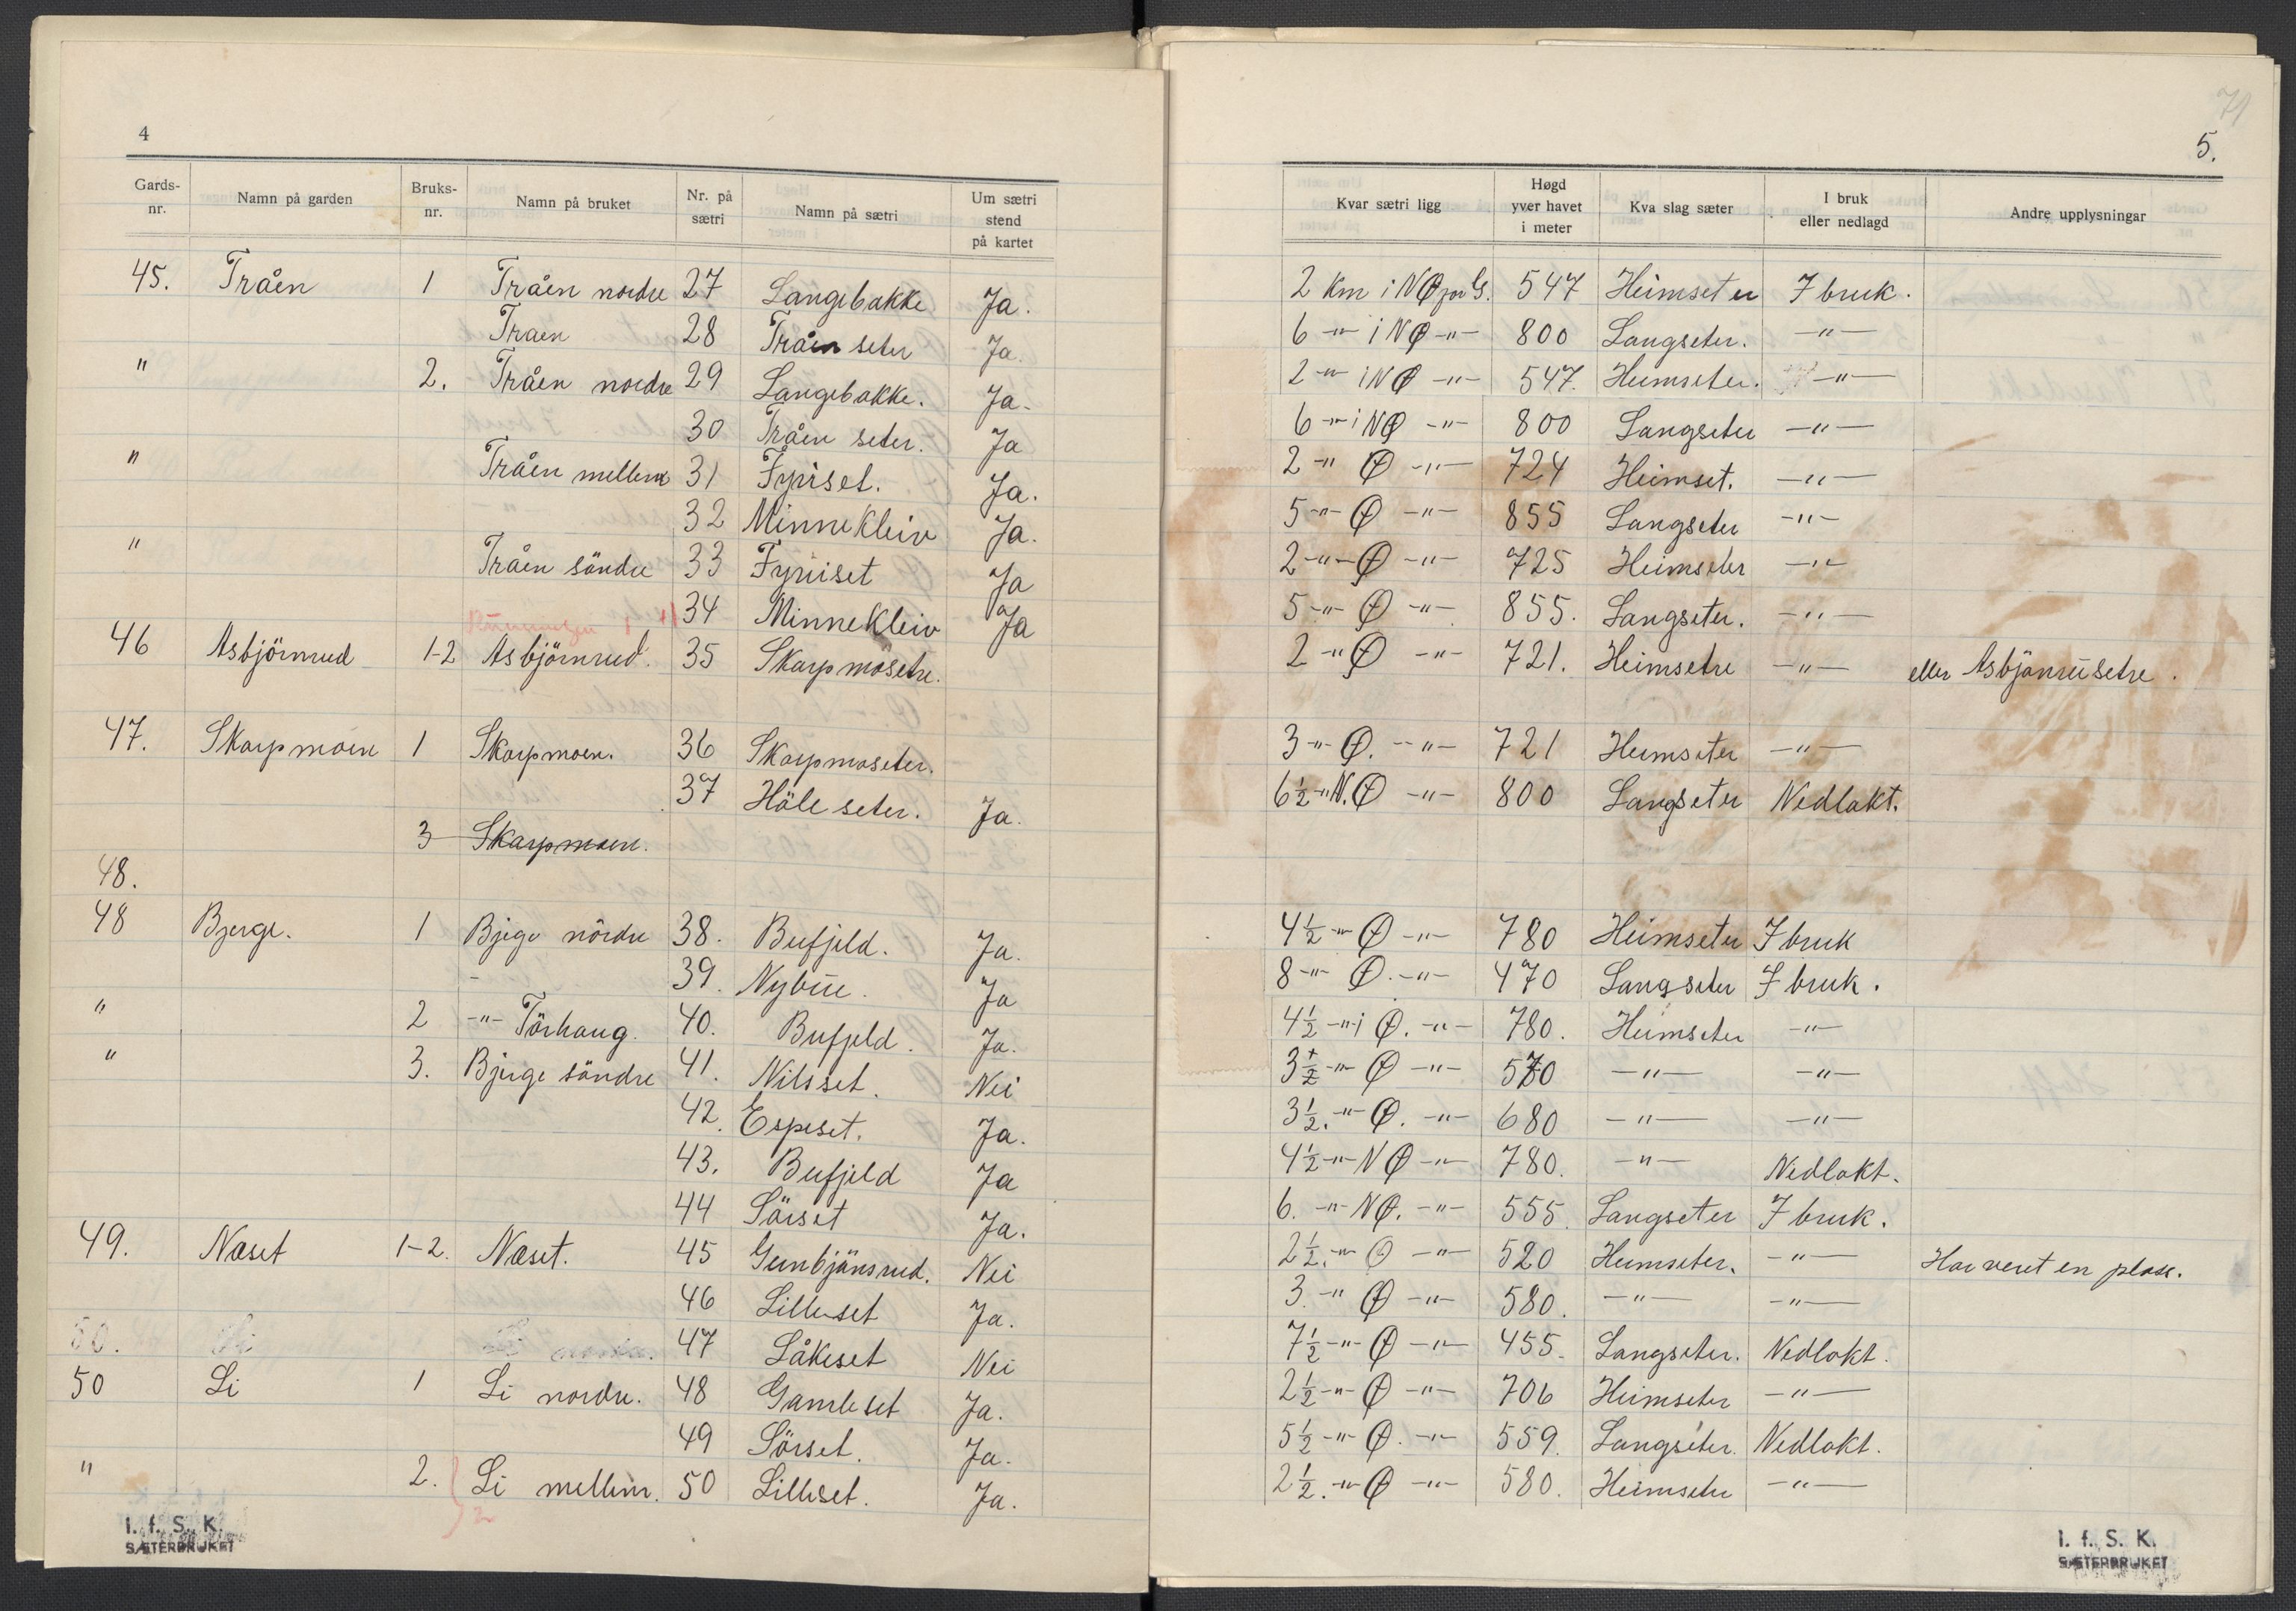 4
Gards-nr. Namn på garden Bruks-nr. Namn på bruket Nr. på sætri Namn på sætri Um sætri stend på kartet
45. Tråen 1 Tråen nordre 27 Langebakke Ja.
Traen 28 Tråen seter Ja.
" 2. Tråen nordre 29 Langebakke. Ja.
30 Tråen seter. Ja
" Tråen mellem 31 Fyriset. Ja.
32 Minnekleiv Ja.
" Tråen söndre 33 Fyriiset Ja
34 Minnekleiv Ja
46 Asbjörnrud 1-2 Asbjörnrud. 35 Skarpmosetre.
47. Skarpmoen 1 Skarpmoen. 36 Skarpmoseter.
37 Höle seter. Ja.
3 Skarpmoen.
48.
48 Bjerge. 1 Bjege nördre 38. Bufjeld. Ja.
- 39. Nybüe. Ja
" 2 -"- Törhaug. 40. Bufjeld. Ja.
" 3. Bjerge söndre 41. Nilsset. Nei
42. Espeset. Ja.
43. Bufjeld Ja
44 Sörset Ja.
49. Næset 1-2. Næset. 45 Gunbjönsrud. Nei
46 Lilleset Ja.
50. Li 47 Låkeset Nei
50 Li 1 Li nordre. 48 Gamleset Ja.
49 Sörset. Ja.
" 2. Li mellem. 50 Lilleset. Ja.
2
I. f. S. K.
SÆTERBRUKET
71
5.
Kvar sætri ligg Høgd yver havet i meter Kva slag sæter I bruk eller nedlagd Andre upplysningar
2 Km i NØ for G. 547 Heimseter I bruk.
6 -"- i NØ -"- 800 Langseter. -"-
2 -"- i NØ -"- 547. Heimseter. -"-
6 -"- i NØ -"- 800 Langseter -"-
2 -"- Ø -"- 724 Heimset. -"-
5 -"- Ø -"- 855 Langseter -"-
2 -"- Ø -"- 725 Heimseter -"-
5 -"- Ø -"- 855. Langseter. -"-
2 -"- Ø -"- 721. Heimsetre -"- eller Asbjönrüsetre.
3 -"- Ø. -"- 721 Heimseter -"-
6 1/2 -"- N.Ø -"- 800 Langseter Nedlakt.
4 1/2 -"- Ø -"- 780 Heimseter I bruk
8 -"- Ø. -"- 470 Langseter I bruk.
4 1/2 -"- i Ø. -"- 780. Heimseter -"-
3 1/2 -"- Ø -"- 570 -"- -"-
3 1/2. -"- Ø. -"- 680 -"- -"-
4 1/2 -"- NØ -"- 780. -"- Nedlakt.
6. -"- NØ. -"- 555. Langseter I bruk.
2 1/2. -"- O -"- 520 Heimseter. -"- Har veret en plass.
3. -"- Ø -"- 580. -"- -"-
7 1/2 -"- Ø -"- 455. Langseter. Nedlakt.
2 1/2 -"- Ø -"- 706 Heimseter -"-
5 1/2 -"- Ø. -"- 559. Langseter. Nedlakt.
2 1/2. -"- Ø -"- 580. Heimseter -"-
I. f. S. K.
SÆTERBRUKET